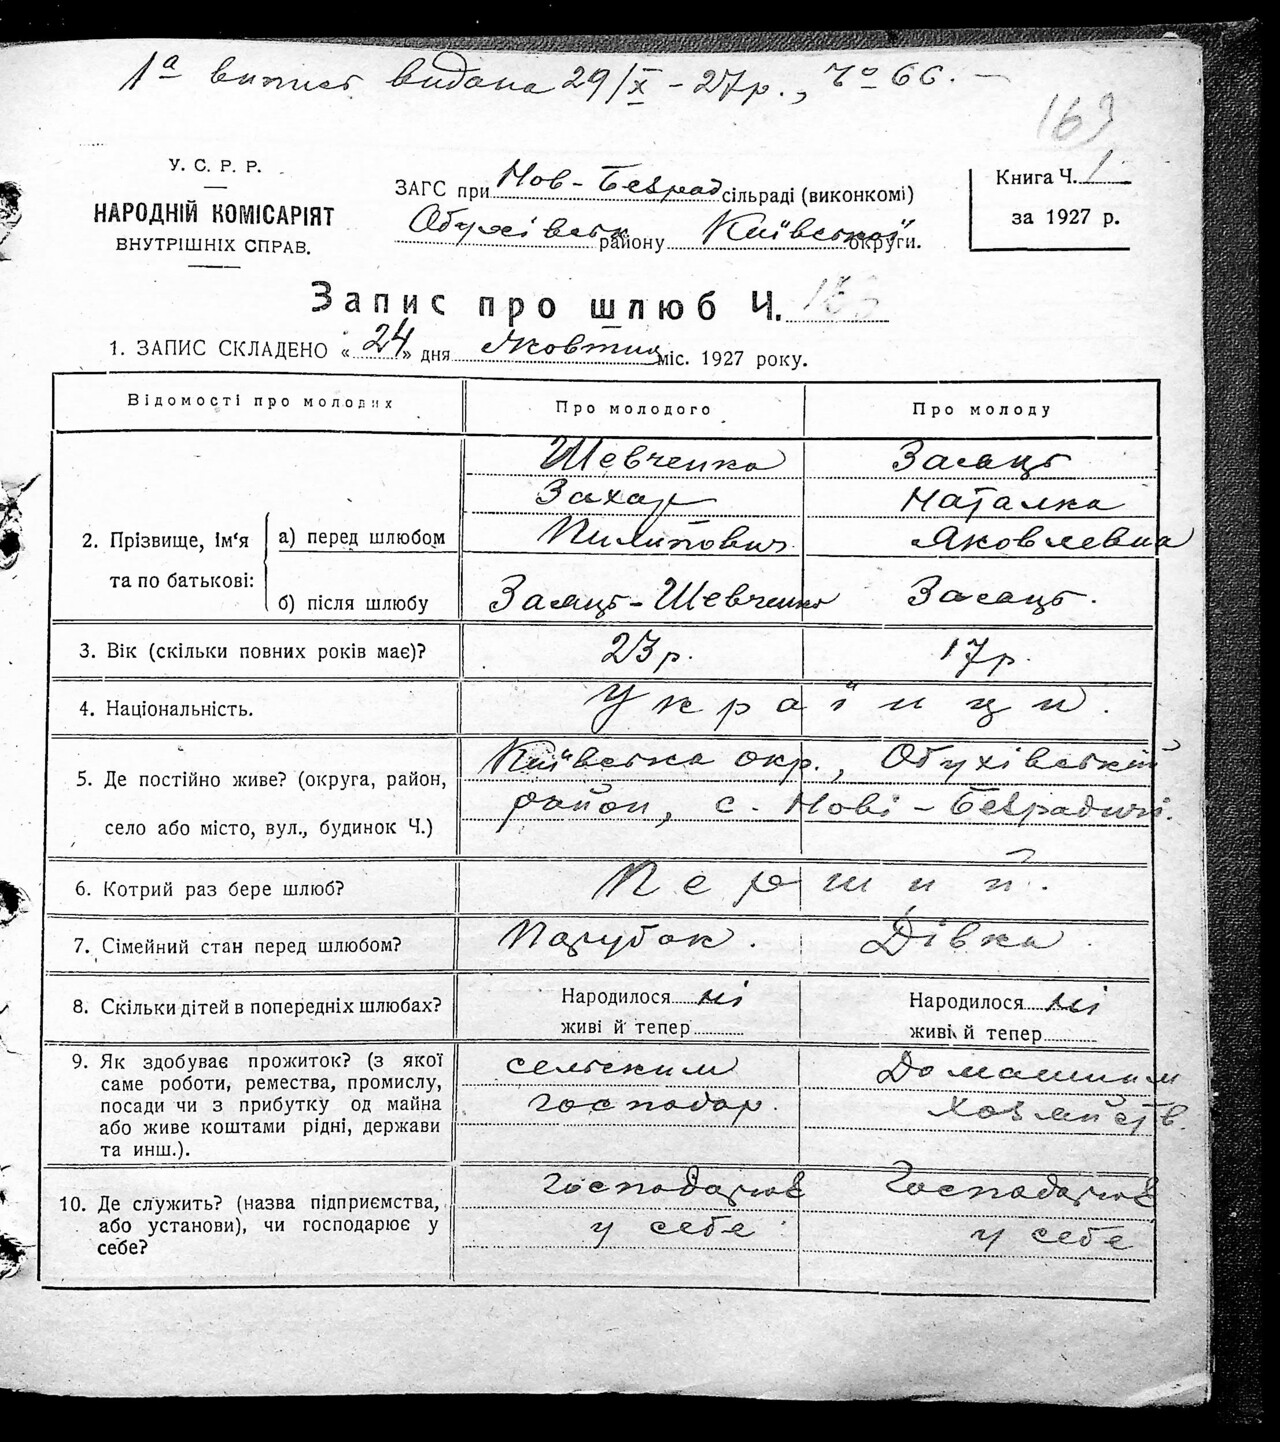 1а випись видана 29/X - 27р., Чо 66. —
163
У. С. Р. Р.
НАРОДНІЙ КОМІСАРІЯТ
ВНУТРІШНІХ СПРАВ.
ЗАГС при Нов-Безрад сільраді (виконкомі)
Обухівськ району Київської округи.
Книга Ч. 1
за 1927 р.
Запис про шлюб Ч. 163
1. ЗАПИС СКЛАДЕНО « 24 » дня Жовтня міс. 1927 року.
Відомості про молодих Про молодого Про молоду
Шевченко Заєаць
Захар Наталка
2. Прізвище, ім'я а) перед шлюбом Пилипович Яковлевна
та по батькові:
б) після шлюбу Заєаць-Шевченко Заєаць.
3. Вік (скільки повних років має)? 23р. 17р.
4. Національність. Українци.
5. Де постійно живе? (округа, район, Київська окр., Обухівський
село або місто, вул., будинок Ч.) район, с. Нові-Безрадичі.
6. Котрий раз бере шлюб? Перший.
7. Сімейний стан перед шлюбом? Парубок. Дівка
8. Скільки дітей в попередніх шлюбах? Народилося ні Народилося ні
живі й тепер живі й тепер
9. Як здобуває прожиток? (з якої сельским Домашним
саме роботи, ремества, промислу,
посади чи з прибутку од майна господар. хозяйств.
або живе коштами рідні, держави
та инш.).
10. Де служить? (назва підприємства, Господарює Господарює
або установи), чи господарює у у себе у себе
себе?